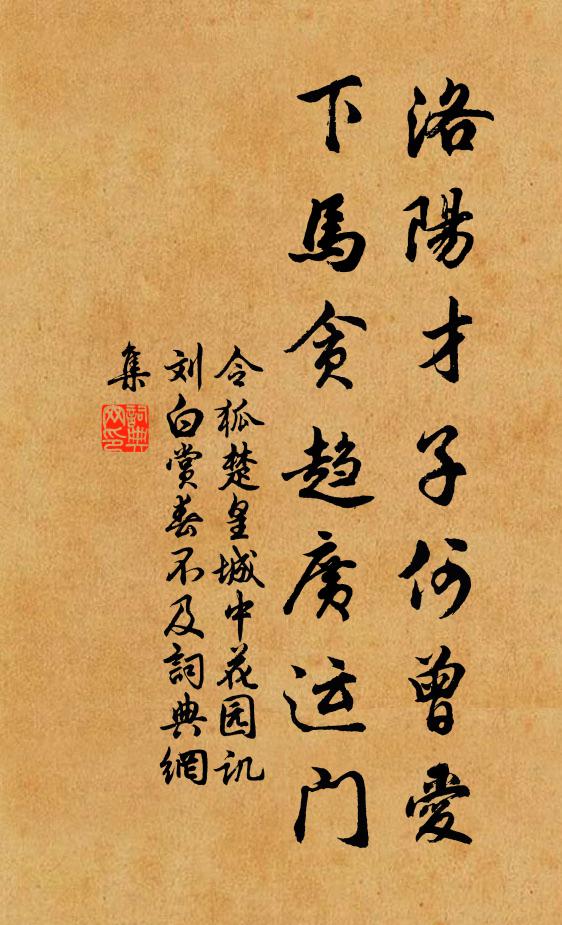 洛陽才子何曾愛
下馬貪趨廣运门
令狐楚皇城中花园讥
刘白赏春不及詞典網
集
詞典
网印